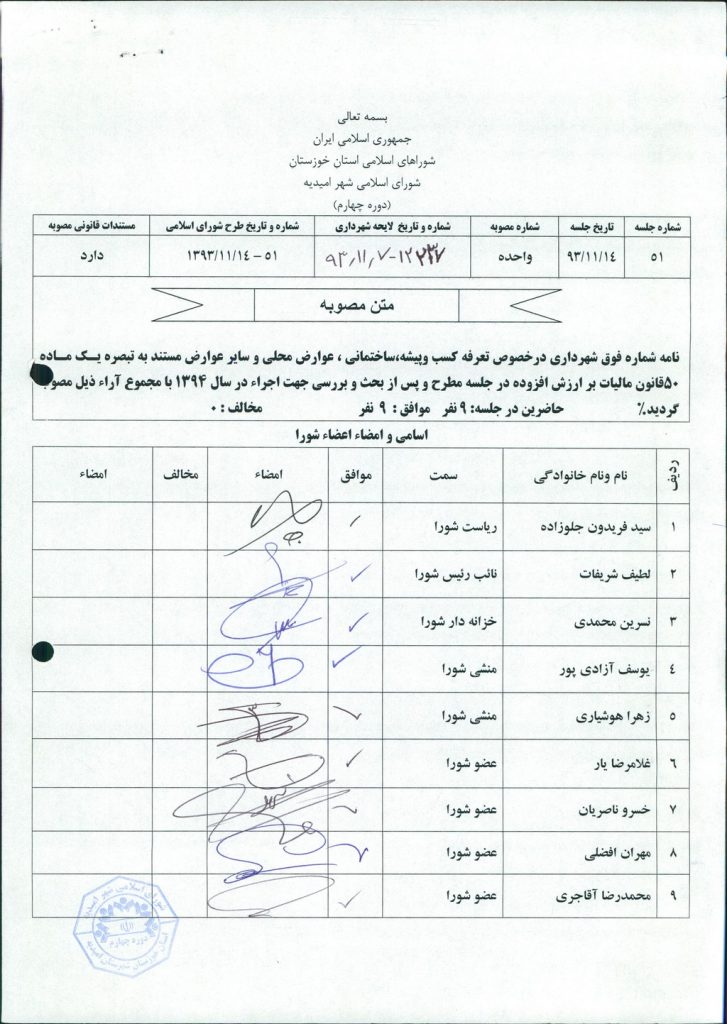 بسمه تعالی
جمهوری اسلامی ایران
شوراهای اسلامی استان خوزستان
شورای اسلامی شهر امیدیه
(دوره چهارم)
شماره جلسه تاریخ جلسه شماره مصوبه شماره و تاریخ لایحه شهرداری شماره و تاریخ طرح شورای اسلامی مستندات قانونی مصوبه
۵۱ ۹۳/۱۱/۱۴ واحده ۹۳/۱۱/۷-۱۲۲۳۷ ۵۱ – ۱۳۹۳/۱۱/۱۴ دارد
متن مصوبه
نامه شماره فوق شهرداری درخصوص تعرفه کسب وپیشه،ساختمانی ، عوارض محلی و سایر عوارض مستند به تبصره یک ماده
۵۰قانون مالیات بر ارزش افزوده در جلسه مطرح و پس از بحث و بررسی جهت اجراء در سال ۱۳۹۴ با مجموع آراء ذیل مصوب
گردید٪ حاضرین در جلسه: ۹ نفر موافق : ۹ نفر مخالف : ۰
اسامی و امضاء اعضاء شورا
ردیف نام ونام خانوادگی سمت موافق امضاء مخالف امضاء
۱ سید فریدون جلوزاده ریاست شورا
۲ لطیف شریفات نائب رئیس شورا
۳ نسرین محمدی خزانه دار شورا
۴ یوسف آزادی پور منشی شورا
۵ زهرا هوشیاری منشی شورا
۶ غلامرضا یار عضو شورا
۷ خسرو ناصریان عضو شورا
۸ مهران افضلی عضو شورا
۹ محمدرضا آقاجری عضو شورا
شورای اسلامی شهر امیدیه
دوره چهارم
استان خوزستان شهرستان امیدیه